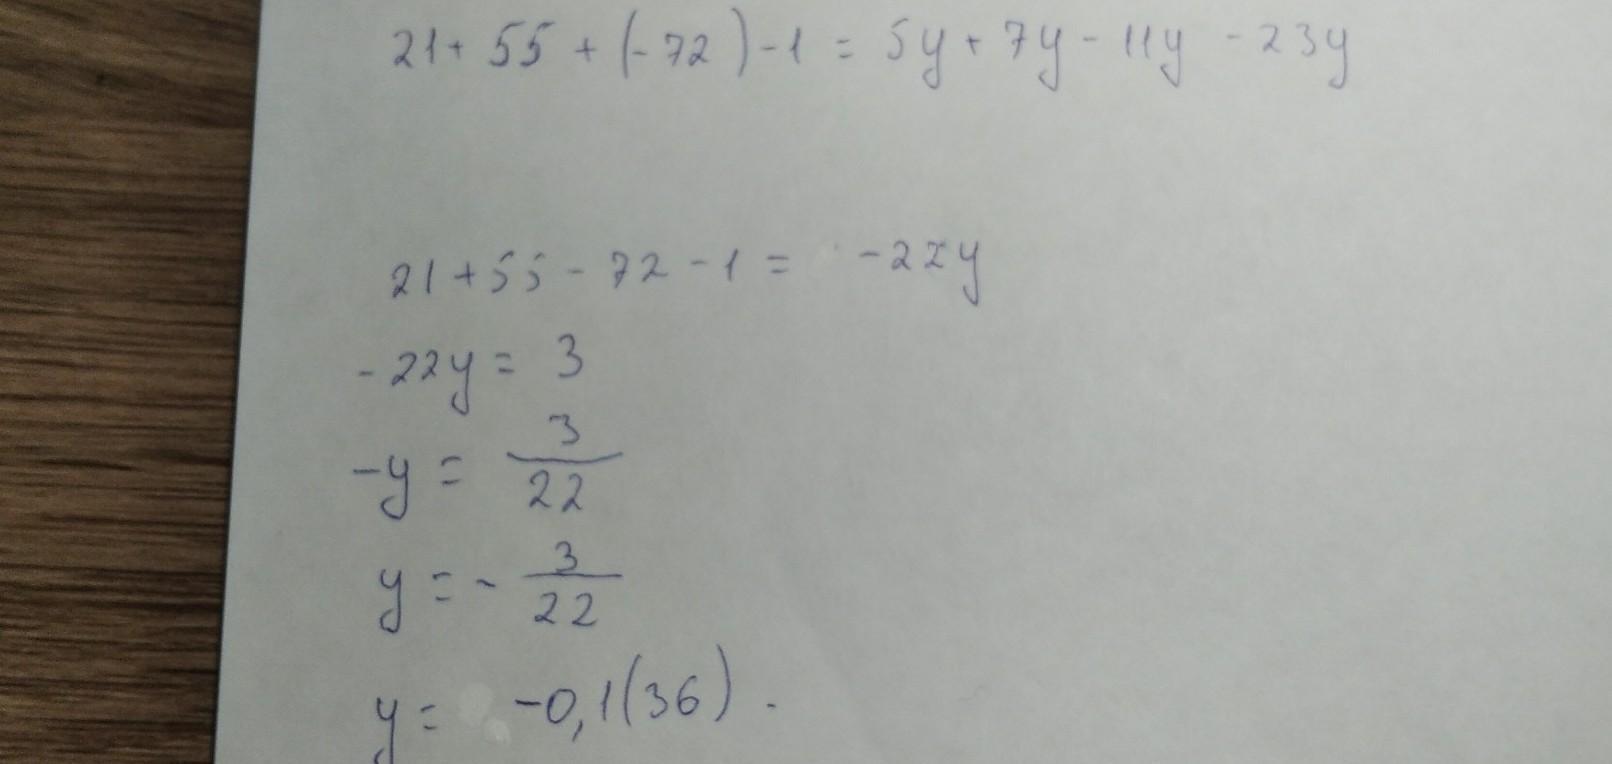 21+ 55 + (-72)-1 = 5y + 7y - 11y - 23y
21 + 55 - 72 - 1 = -22y
-22y = 3
-y = 3/22
y = - 3/22
y = -0,1(36).